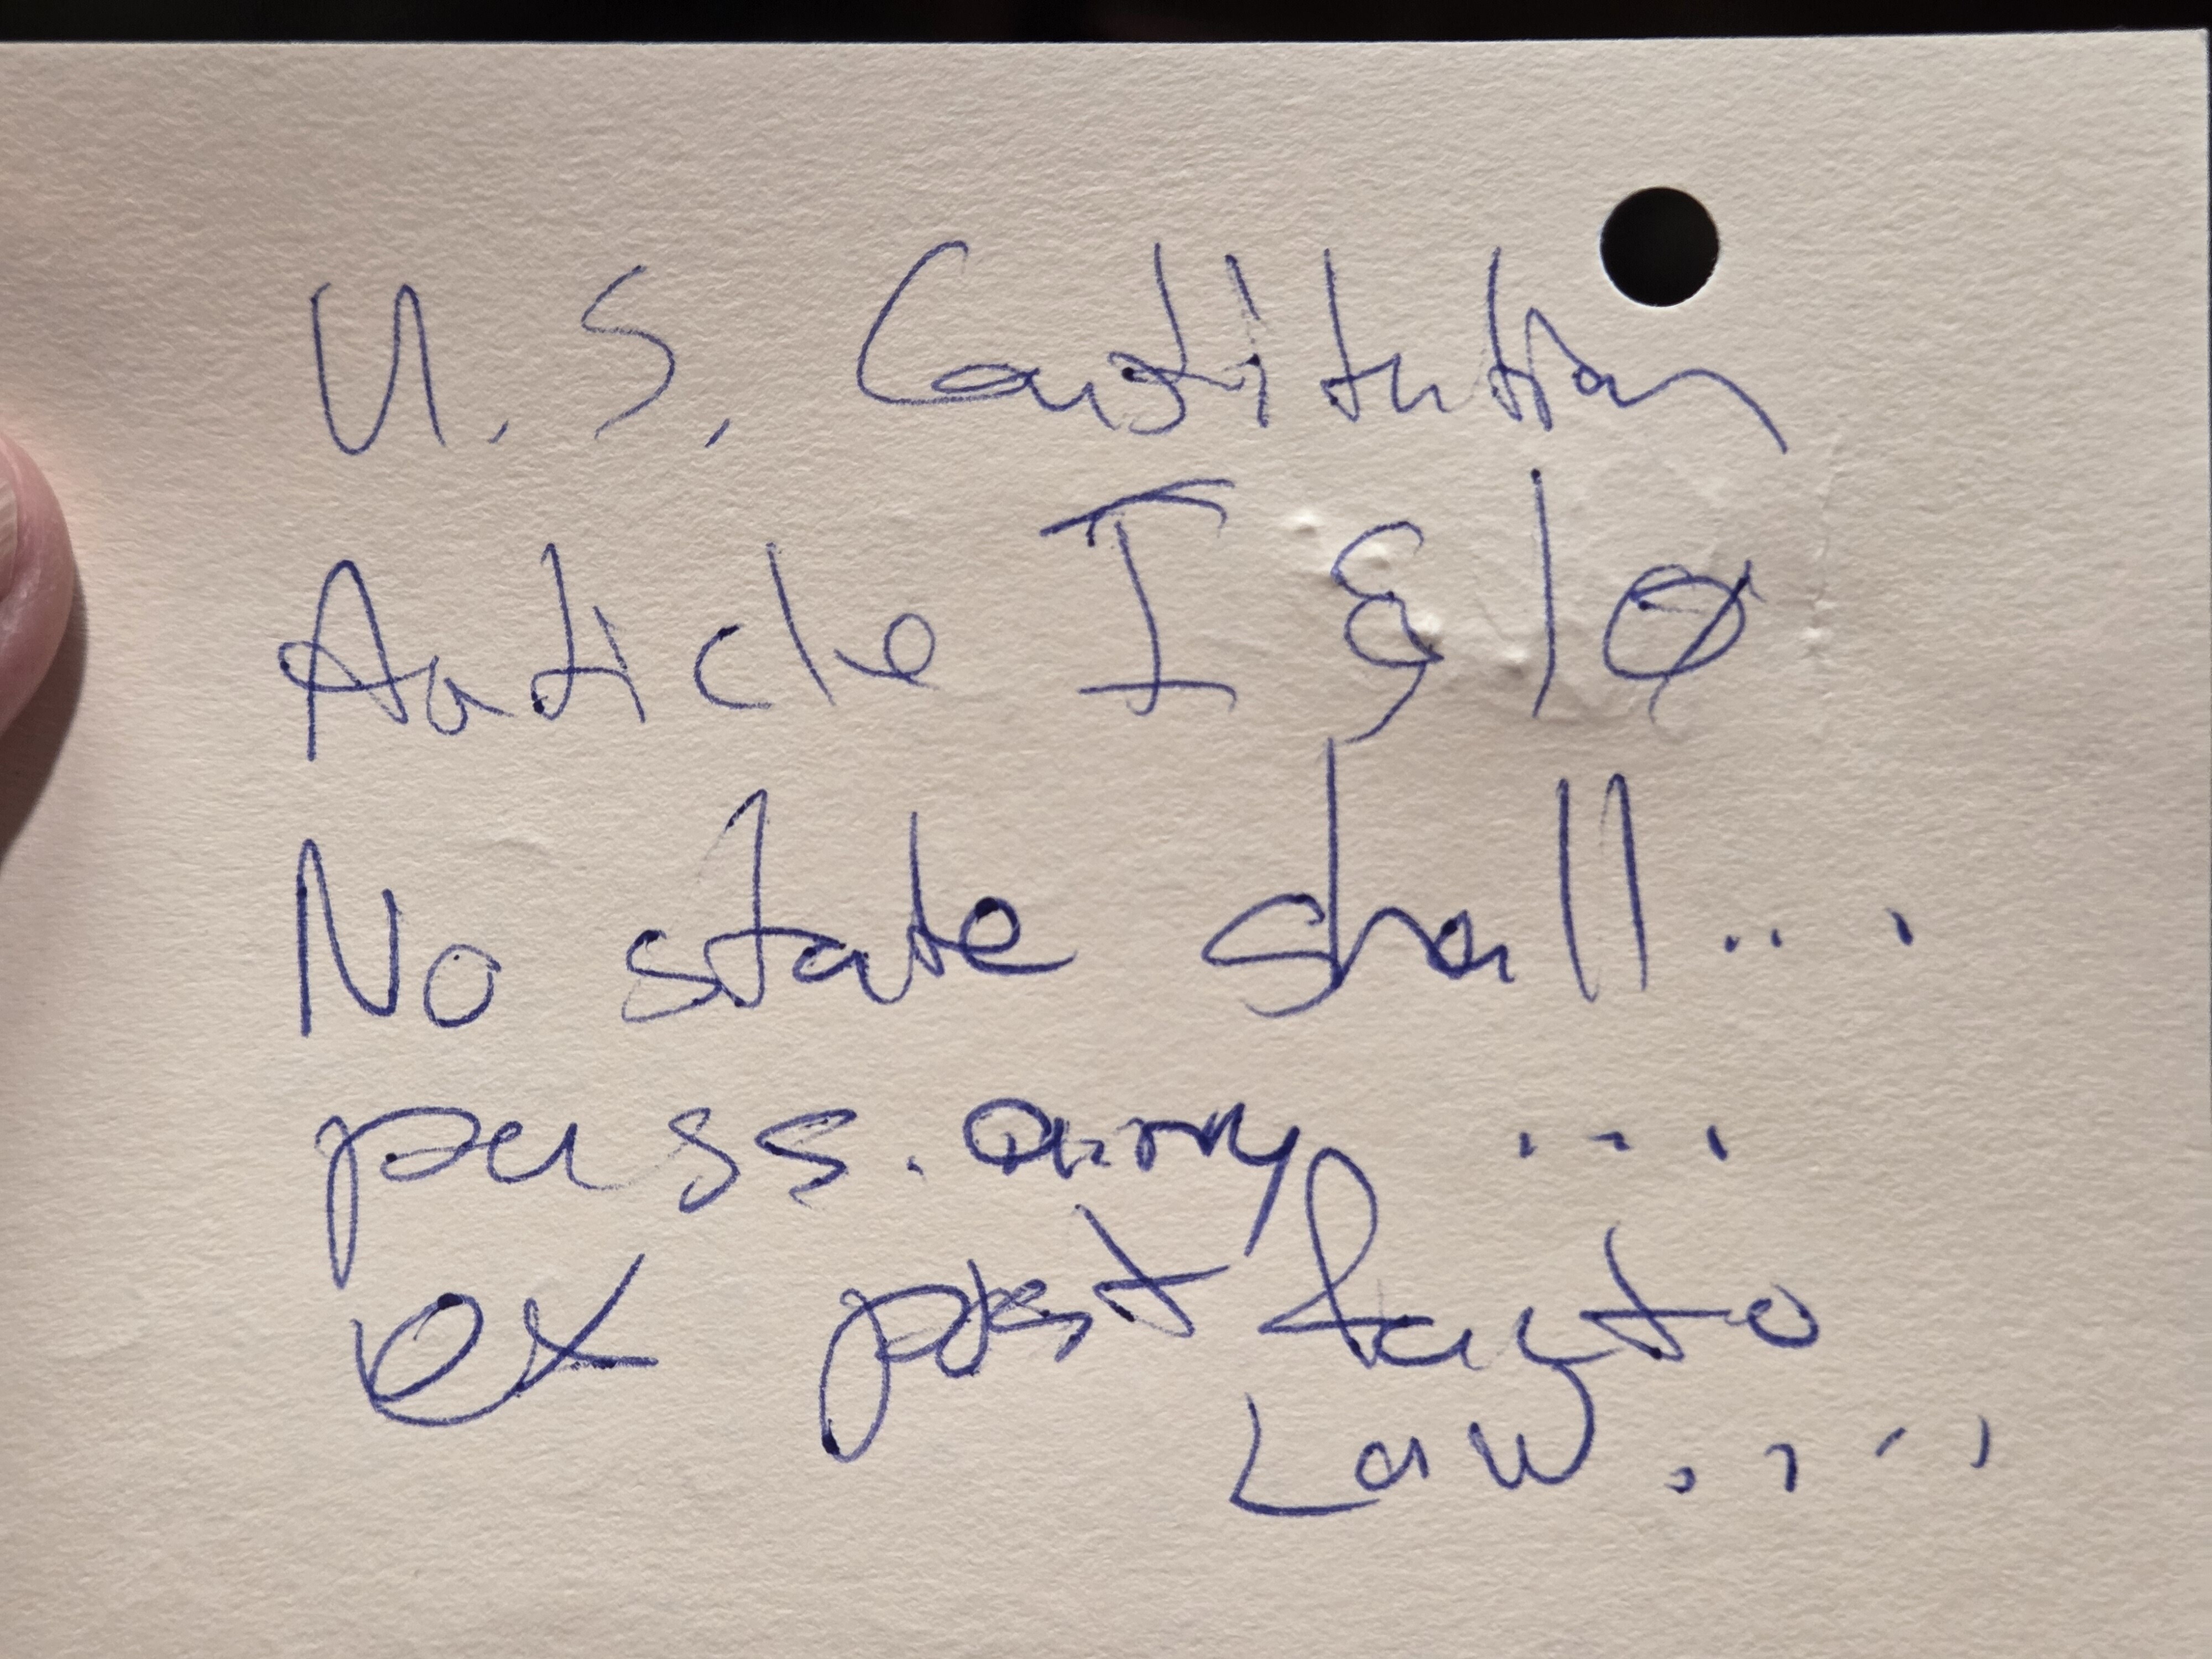 U.S. Constitution
Article I § 10
No state shall...
pass any ...
ex post facto
Law....